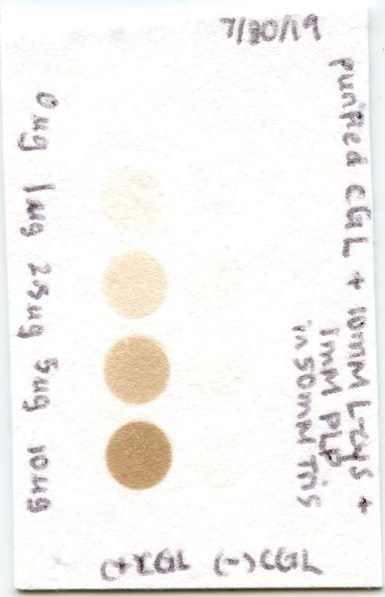 7/30/19
purified CGL + 10mM L-cys +
1mM PLP
in 50mM Tris
0ug 1ug 2.5ug 5ug 10ug
(+)CGL (-)CGL